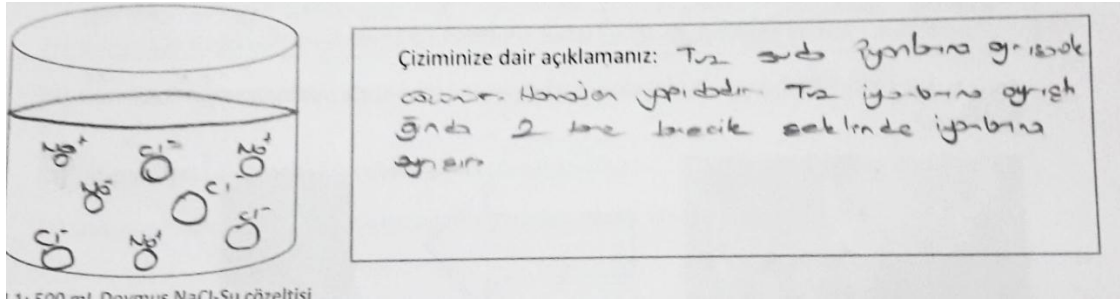 Na⁺ Cl⁻ Na⁺
Na⁺ Cl⁻
Cl⁻ Na⁺ Cl⁻
1: 500 mL Doymuş NaCl-Su çözeltisi
Çiziminize dair açıklamanız: Tuz suda iyonlarına ayrışarak
çözünür. Homojen yapıdadır. Tuz iyonlarına ayrıştı
ğında 2 tane tanecik şeklinde iyonlarına
ayrışır.